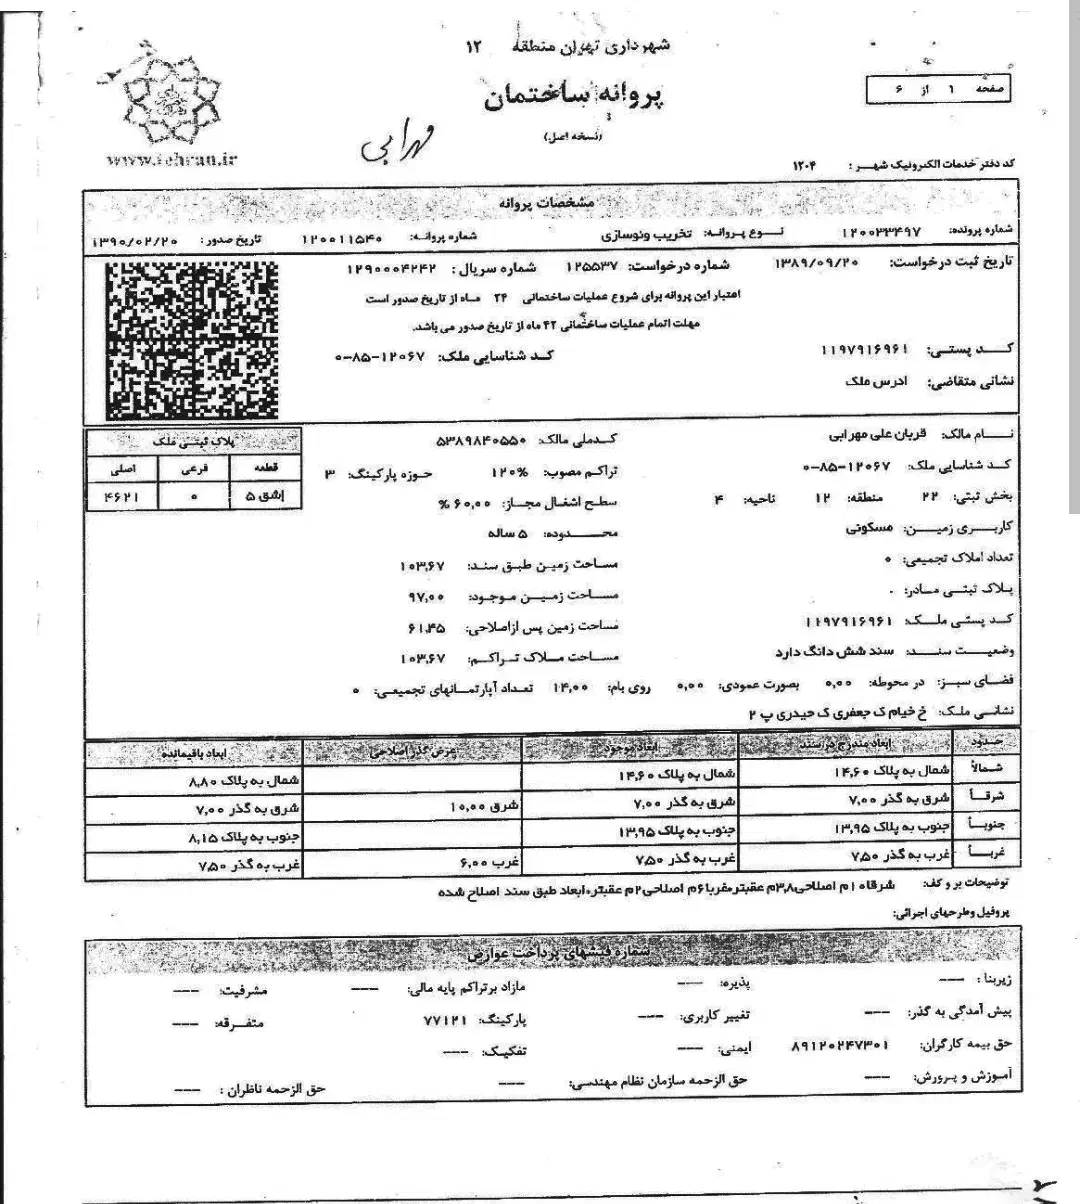 شهرداری تهران منطقه ۱۲
پروانه ساختمان
(نسخه اصل)
صفحه ۱ از ۶
www.tehran.ir
مهرابی
کد دفتر خدمات الکترونیک شهر : ۱۲۰۴
مشخصات پروانه
شماره پرونده: ۱۲۰۰۳۳۴۹۷ نوع پروانه: تخریب ونوسازی شماره پروانه: ۱۲۰۰۱۱۵۴۰ تاریخ صدور : ۱۳۹۰/۰۲/۲۰
تاریخ ثبت درخواست: ۱۳۸۹/۰۹/۲۰ شماره درخواست: ۱۲۵۵۳۷ شماره سریال : ۱۲۹۰۰۰۴۲۴۲
اعتبار این پروانه برای شروع عملیات ساختمانی ۲۴ ماه از تاریخ صدور است
مهلت اتمام عملیات ساختمانی ۴۲ ماه از تاریخ صدور می باشد.
کد پستی: ۱۱۹۷۹۱۶۹۶۱ کد شناسایی ملک: ۱۲۰۶۷-۸۵-۰
نشانی متقاضی: ادرس ملک
نام مالک: قربان علی مهرابی کدملی مالک: ۵۳۸۹۸۴۰۵۵۰ پلاک ثبتی ملک
کد شناسایی ملک: ۱۲۰۶۷-۸۵-۰ تراکم مصوب: ۱۲۰% حوزه پارکینگ: ۳ قطعه فرعی اصلی
بخش ثبتی: ۲۲ منطقه: ۱۲ ناحیه: ۴ سطح اشغال مجاز: ۶۰,۰۰ % إشق ۵ ۰ ۴۶۲۱
کاربری زمین: مسکونی محدوده: ۵ ساله
تعداد املاک تجمیعی: ۰ مساحت زمین طبق سند: ۱۰۳,۶۷
پلاک ثبتی مادر: . مساحت زمین موجود: ۹۷,۰۰
کد پستی ملک: ۱۱۹۷۹۱۶۹۶۱ مساحت زمین پس ازاصلاحی: ۶۱,۴۵
وضعیت سند: سند شش دانگ دارد مساحت ملاک تراکم: ۱۰۳,۶۷
فضای سبز: در محوطه: ۰,۰۰ بصورت عمودی: ۰,۰۰ روی بام: ۱۴,۰۰ تعداد آپارتمانهای تجمیعی: ۰
نشانی ملک: خ خیام ک جعفری ک حیدری پ ۲
حدود ابعاد مندرج در سند ابعاد موجود عرض گذر اصلاحی ابعاد باقیمانده
شمالاً شمال به پلاک ۱۴,۶۰ شمال به پلاک ۱۴,۶۰ شمال به پلاک ۸,۸۰
شرقاً شرق به گذر ۷,۰۰ شرق به گذر ۷,۰۰ شرق ۱۰,۰۰ شرق به گذر ۷,۰۰
جنوباً جنوب به پلاک ۱۳,۹۵ جنوب به پلاک ۱۳,۹۵ جنوب به پلاک ۸,۱۵
غرباً غرب به گذر ۷,۵۰ غرب به گذر ۷,۵۰ غرب ۶,۰۰ غرب به گذر ۷,۵۰
توضیحات بر و کف: شرقا۱۰م اصلاحی۳,۸م عقبتر،غربا۶م اصلاحی۲م عقبتر،ابعاد طبق سند اصلاح شده
پروفیل وطرحهای اجرائی:
شماره فیشهای پرداخت عوارض
زیربنا : --- پذیره: --- مازاد برتراکم پایه مالی: --- مشرفیت: ---
پیش آمدگی به گذر: --- تغییر کاربری: --- پارکینگ: ۷۷۱۲۱ متفرقه: ---
حق بیمه کارگران: ۸۹۱۲۰۲۴۷۳۰۱ ایمنی: --- تفکیک: ---
آموزش و پرورش: --- حق الزحمه سازمان نظام مهندسی: --- حق الزحمه ناظران : ---